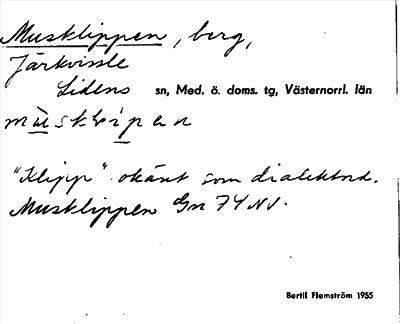 Musklippen, berg,
Järkvissle
Lidens sn, Med. ö. doms. tg, Västernorrl. län
muskl<i>i</i>pen
"Klipp" okänt som dialektord.
Musklippen Gn 74 NV.
Bertil Flemström 1955